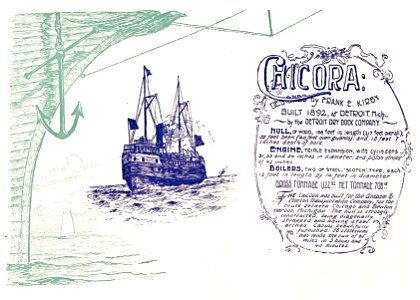 CHICORA.
DESIGNED by FRANK E. KIRBY
BUILT 1892, at DETROIT, Mich.
by the DETROIT DRY DOCK COMPANY
HULL, OF WOOD, 198 feet in length (217 feet over all)
35 feet beam (40 feet over guards), and 13 feet
inches depth of hold.
ENGINE, TRIPLE EXPANSION, with CYLINDERS
20, 33 and 54 inches in diameter, and piston stroke
of 42 inches.
BOILERS, TWO OF STEEL, "SCOTCH" TYPE, each
12 feet in length by 14 feet in diameter
GROSS TONNAGE 1122 NET TONNAGE 708
THE CHICORA was built for the Graham &
Morton Transportation Company, for the
route between Chicago and Benton
Harbor, Michigan. The hull is strongly
constructed, being diagonally
strapped and having steel
arches. Cabins beautifully
furnished.
has made the run of 61
miles in 3 hours and
40 minutes.